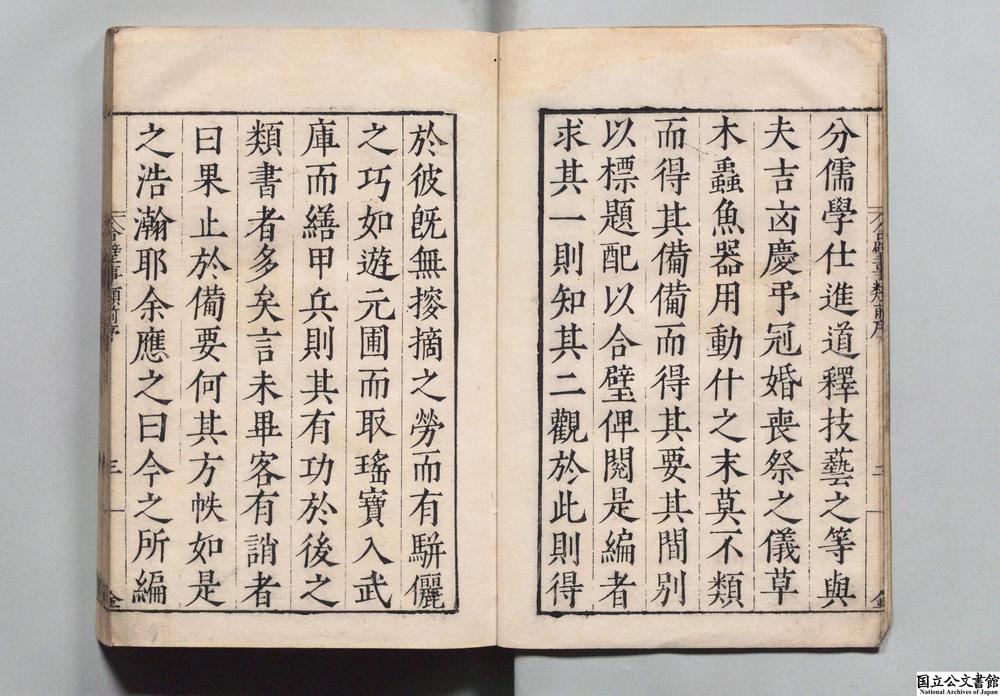 分儒學仕進道釋技藝之等與
夫吉凶慶弔冠婚喪祭之儀草
木蟲魚器用動什之末莫不類
而得其備備而得其要其間別
以標題配以合璧俾閱是編者
求其一則知其二觀於此則得
於彼旣無揆摘之勞而有駢儷
之巧如遊元圃而取瑤寶入武
庫而繕甲兵則其有功於後之
類書者多矣言未畢客有誚者
曰果止於備要何其方帙如是
之浩瀚耶余應之曰今之所編
合璧事類前序
二
合璧事類前序
三
国立公文書館
National Archives of Japan